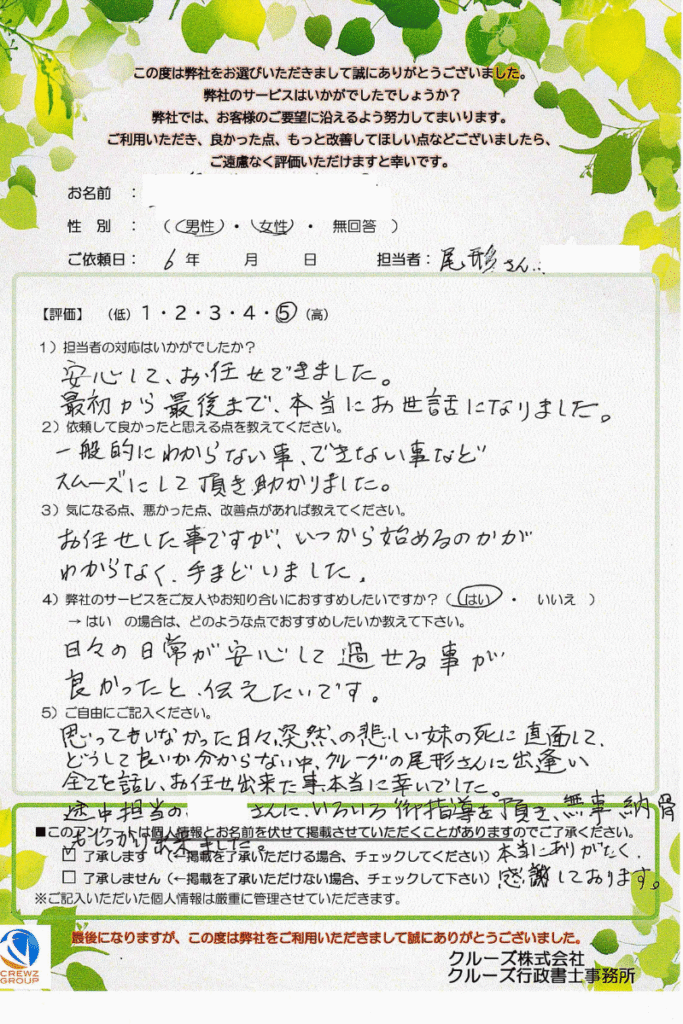 この度は弊社をお選びいただきまして誠にありがとうございました。
弊社のサービスはいかがでしたでしょうか？
弊社では、お客様のご要望に沿えるよう努力してまいります。
ご利用いただき、良かった点、もっと改善してほしい点などございましたら、
ご遠慮なく評価いただけますと幸いです。
お名前 ：
性 別 ： （ 男性 ・ 女性 ・ 無回答 ）
ご依頼日： 6 年 月 日 担当者： 尾形さん
【評価】 （低）1・2・3・4・5（高）
1）担当者の対応はいかがでしたか？
安心して、お任せできました。
最初から最後まで、本当にお世話になりました。
2）依頼して良かったと思える点を教えてください。
一般的にわからない事、できない事など
スムーズにして頂き助かりました。
3）気になる点、悪かった点、改善点があれば教えてください。
お任せした事ですが、いつから始めるのかが
わからなく、手まどいました。
4）弊社のサービスをご友人やお知り合いにおすすめしたいですか？（ はい ・ いいえ ）
→ はい の場合は、どのような点でおすすめしたいか教えて下さい。
日々の日常が安心して過せる事が
良かったと、伝えたいです。
5）ご自由にご記入ください。
思ってもいなかった日々、突然の悲しい妹の死に直面して、
どうして良いか分からない中、クルーズの尾形さんに出逢い
全てを話し、お任せ出来た事、本当に幸いでした。
途中担当の さんに、いろいろ御指導を頂き、無事納骨
もしっかり出来ました。
■このアンケートは個人情報とお名前を伏せて掲載させていただくことがありますのでご了承ください。
☑ 了承します （←掲載を了承いただける場合、チェックしてください） 本当にありがたく、
□ 了承しません（←掲載を了承いただけない場合、チェックして下さい） 感謝しております。
※ご記入いただいた個人情報は厳重に管理させていただきます。
最後になりますが、この度は弊社をご利用いただきまして誠にありがとうございました。
クルーズ株式会社
クルーズ行政書士事務所
CREWZ
GROUP